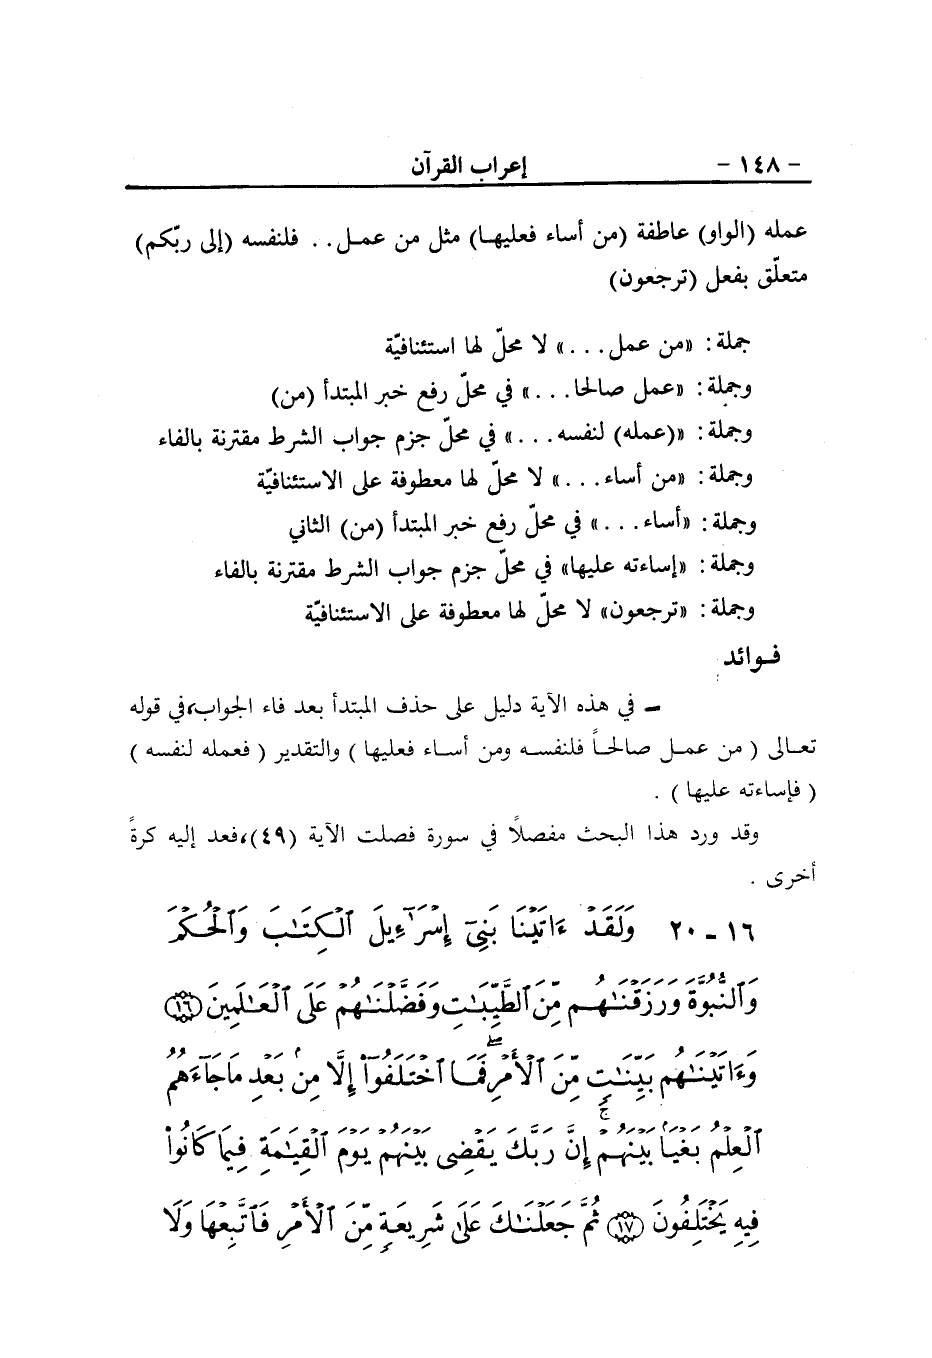 - ١٤٨ - إعراب القرآن
عمله (الواو) عاطفة (من أساء فعليهـا) مثل من عمـل . . فلنفسه (إلى ربّكم)
متعلّق بفعل (ترجعون)
جملة : «من عمل . . .» لا محلّ لها استئنافيّة
وجملة : «عمل صالحا . . .» في محلّ رفع خبر المبتدأ (من)
وجملة : «(عمله) لنفسه . . .» في محلّ جزم جواب الشرط مقترنة بالفاء
وجملة : «من أساء . . .» لا محلّ لها معطوفة على الاستئنافيّة
وجملة : «أساء . . .» في محلّ رفع خبر المبتدأ (من) الثاني
وجملة : «إساءته عليها» في محلّ جزم جواب الشرط مقترنة بالفاء
وجملة : «ترجعون» لا محلّ لها معطوفة على الاستئنافيّة
فـوائد
ـ في هذه الآية دليل على حذف المبتدأ بعد فاء الجواب، في قوله
تعـالى ( من عمـل صالحـاً فلنفسـه ومن أساء فعليها ) والتقدير ( فعمله لنفسه )
( فإساءته عليها ) .
وقد ورد هذا البحث مفصلاً في سورة فصلت الآية (٤٩)، فعد إليه كرةً
أخرى .
١٦ ـ ٢٠ وَلَقَدْ ءَاتَيْنَا بَنِىٓ إِسْرَٰٓءِيلَ ٱلْكِتَٰبَ وَٱلْحُكْمَ
وَٱلنُّبُوَّةَ وَرَزَقْنَٰهُم مِّنَ ٱلطَّيِّبَٰتِ وَفَضَّلْنَٰهُمْ عَلَى ٱلْعَٰلَمِينَ ﴿١٦﴾
وَءَاتَيْنَٰهُم بَيِّنَٰتٍ مِّنَ ٱلْأَمْرِ ۖ فَمَا ٱخْتَلَفُوٓا۟ إِلَّا مِنۢ بَعْدِ مَا جَآءَهُمُ
ٱلْعِلْمُ بَغْيًۢا بَيْنَهُمْ ۚ إِنَّ رَبَّكَ يَقْضِى بَيْنَهُمْ يَوْمَ ٱلْقِيَٰمَةِ فِيمَا كَانُوا۟
فِيهِ يَخْتَلِفُونَ ﴿١٧﴾ ثُمَّ جَعَلْنَٰكَ عَلَىٰ شَرِيعَةٍ مِّنَ ٱلْأَمْرِ فَٱتَّبِعْهَا وَلَا